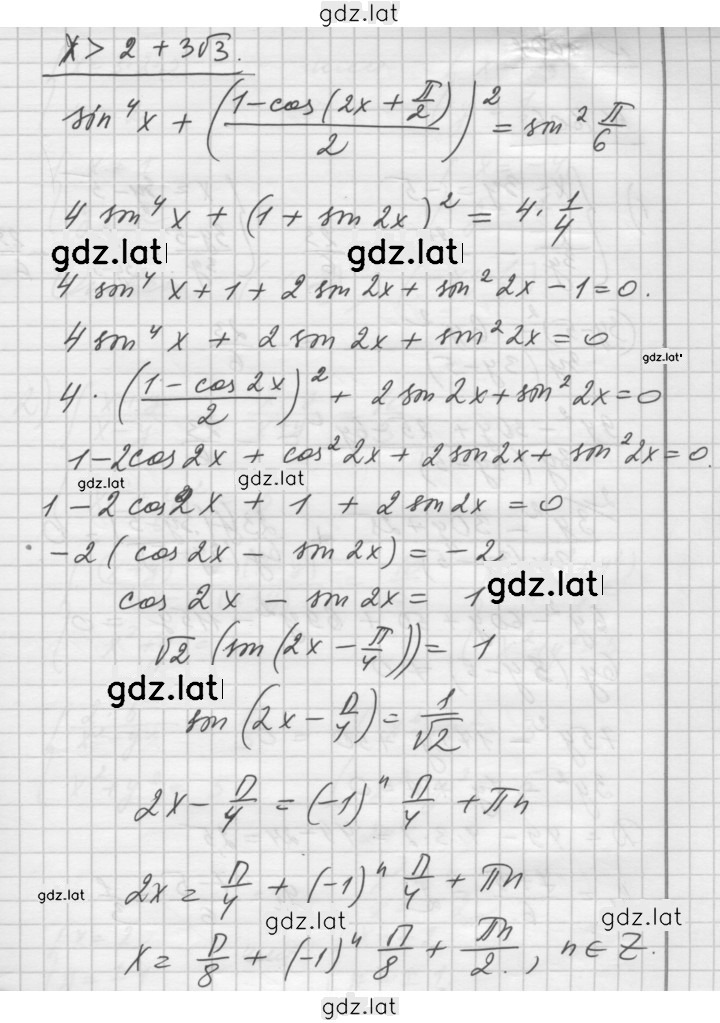 gdz.lat
x > 2 + 3√3.
sin⁴x + ((1-cos(2x + π/2))/2)² = sin² π/6
4 sin⁴x + (1 + sin 2x)² = 4 · 1/4
gdz.lat gdz.lat
4 sin⁴x + 1 + 2 sin 2x + sin² 2x - 1 = 0.
4 sin⁴x + 2 sin 2x + sin² 2x = 0
gdz.lat
4 · ((1 - cos 2x)/2)² + 2 sin 2x + sin² 2x = 0
1 - 2cos 2x + cos² 2x + 2 sin 2x + sin² 2x = 0.
gdz.lat gdz.lat
1 - 2 cos 2x + 1 + 2 sin 2x = 0
-2 (cos 2x - sin 2x) = -2
cos 2x - sin 2x = 1
gdz.lat
√2 (sin(2x - π/4)) = 1
gdz.lat
sin (2x - π/4) = 1/√2
2x - π/4 = (-1)ⁿ π/4 + πn
2x = π/4 + (-1)ⁿ π/4 + πn
gdz.lat gdz.lat gdz.lat
x = π/8 + (-1)ⁿ π/8 + πn/2., n ∈ Z.
gdz.lat